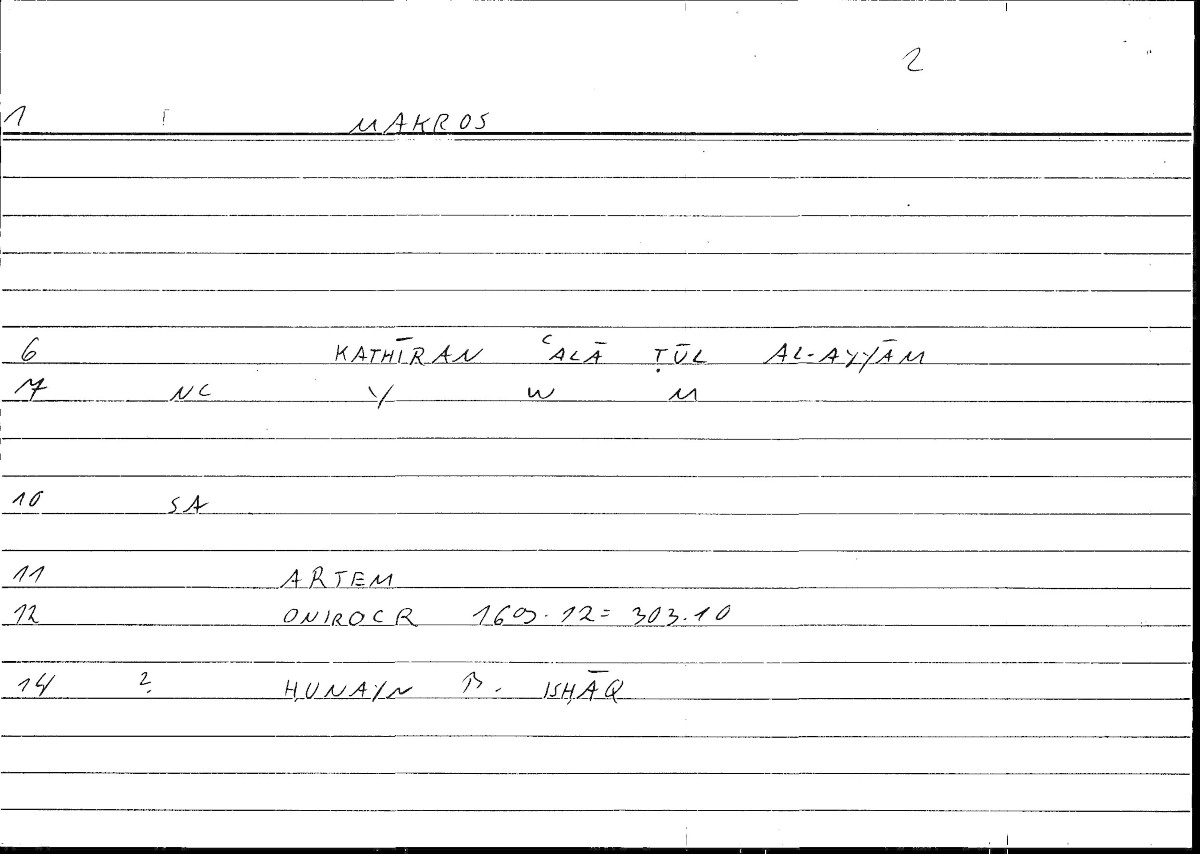 2
1 MAKROS
6 KATHĪRAN ʿALĀ ṬŪL AL-AYYĀM
7 NC Y W M
10 SA
11 ARTEM
12 ONIROCR 169.12 = 303.10
14 ? ḤUNAYN B. ISḤĀQ